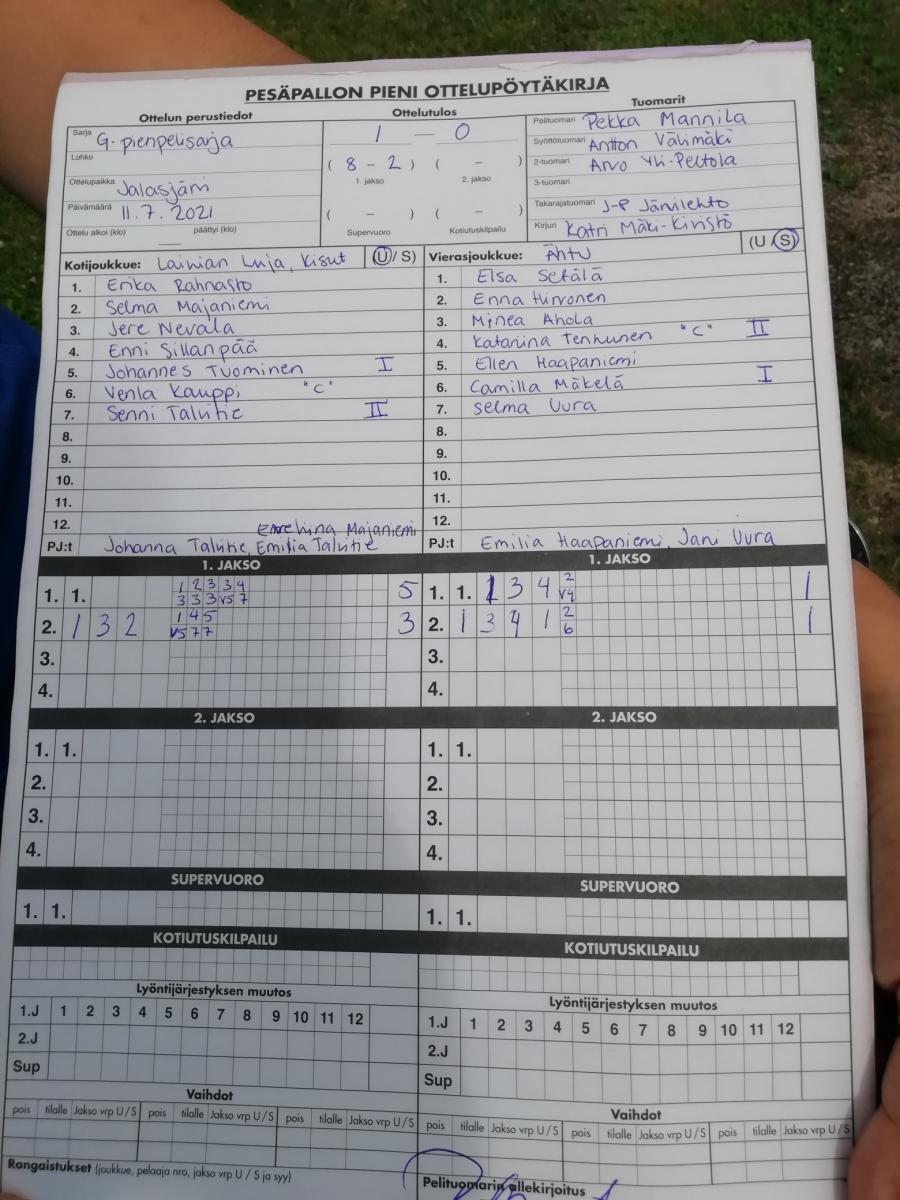 PESÄPALLON PIENI OTTELUPÖYTÄKIRJA
Ottelun perustiedot
Sarja G-pienpelisarja
Lohko
Ottelupaikka Jalasjärvi
Päivämäärä 11.7.2021
Ottelu alkoi (klo) päättyi (klo)
Ottelutulos
1 — 0
( 8 - 2 ) ( - )
1. jakso 2. jakso
( - ) ( - )
Supervuoro Kotiutuskilpailu
Tuomarit
Pelituomari Pekka Mannila
Syöttötuomari Antton Välimäki
2-tuomari Arvo Yli-Peltola
3-tuomari
Takarajatuomari J-P Järvilehto
Kirjuri Katri Mäki-Kivistö
Kotijoukkue: Kisut (U / S)
1. Erika Rahnasto
2. Selma Majaniemi
3. Jere Nevala
4. Enni Sillanpää
5. Johannes Tuominen I
6. Venla Kauppi "C"
7. Senni Talvitie II
8.
9.
10.
11.
12.
Majaniemi
PJ:t Johanna Talvitie, Emilia Talvitie
Vierasjoukkue: Ähtu (U / S)
1. Elsa Setälä
2. Enna Hirvonen
3. Minea Ahola
4. Katariina Tenhunen "C" II
5. Ellen Haapaniemi
6. Camilla Mäkelä I
7. Selma Uura
8.
9.
10.
11.
12.
PJ:t Emilia Haapaniemi, Jani Uura
1. JAKSO
1. 1. 1 2 3 3 4 5
3 3 3 v5 7
2. 1 3 2 1 4 5 3
v5 7 7
3.
4.
1. JAKSO
1. 1. 1 3 4 2 1
v4
2. 1 3 4 1 2 1
6
3.
4.
2. JAKSO
1. 1.
2.
3.
4.
2. JAKSO
1. 1.
2.
3.
4.
SUPERVUORO
1. 1.
SUPERVUORO
1. 1.
KOTIUTUSKILPAILU
KOTIUTUSKILPAILU
Lyöntijärjestyksen muutos
1.J 1 2 3 4 5 6 7 8 9 10 11 12
2.J
Sup
Lyöntijärjestyksen muutos
1.J 1 2 3 4 5 6 7 8 9 10 11 12
2.J
Sup
Vaihdot
pois tilalle Jakso vrp U/S pois tilalle Jakso vrp U/S pois tilalle Jakso vrp U/S
Vaihdot
pois tilalle Jakso vrp U/S pois tilalle Jakso vrp U/S pois tilalle Jakso vrp U/S
Rangaistukset (joukkue, pelaaja nro, jakso vrp U / S ja syy)
Pelituomarin allekirjoitus